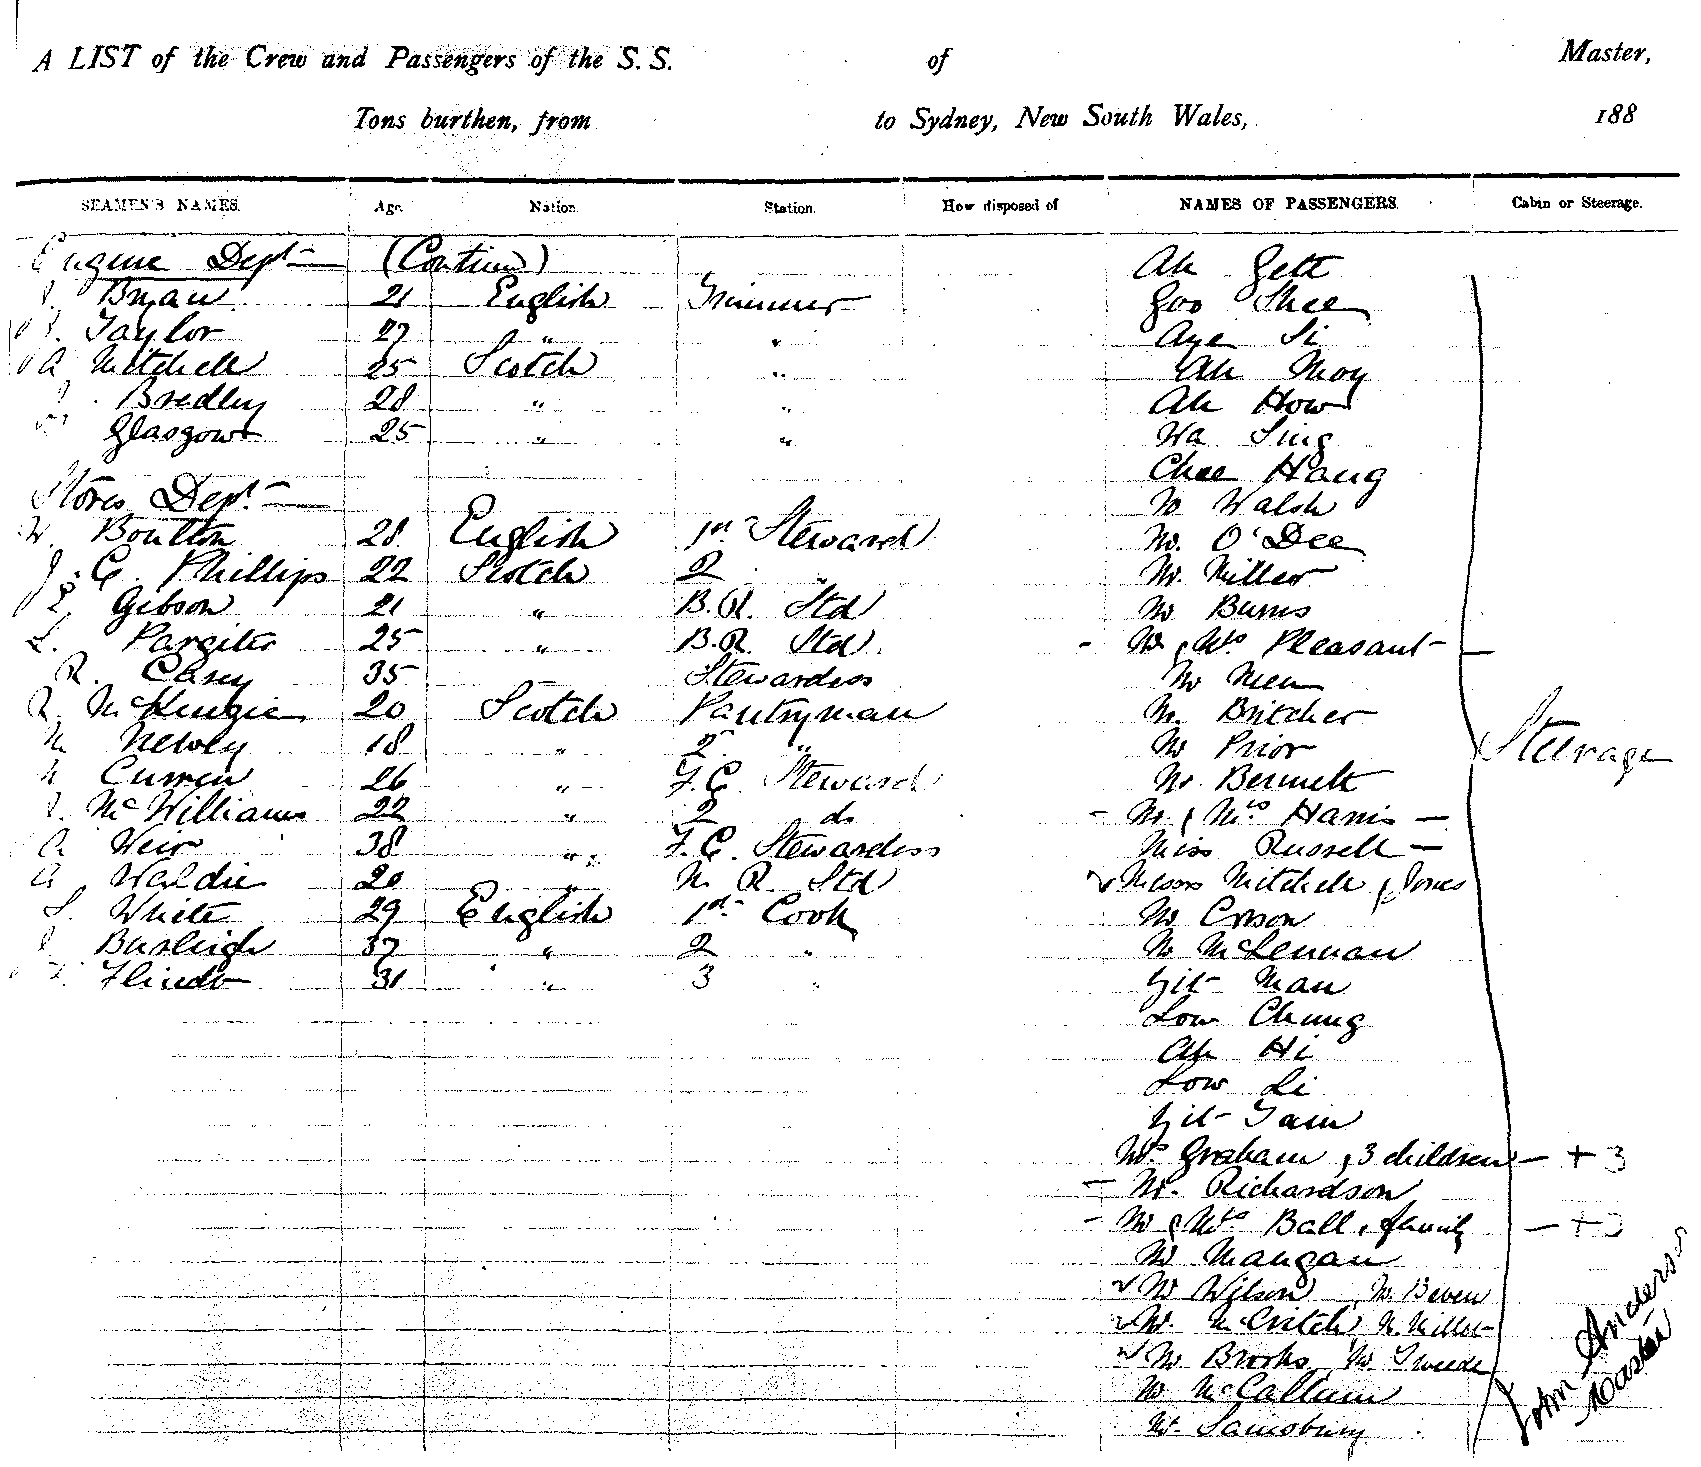 A LIST of the Crew and Passengers of the S. S. of Master,
Tons burthen, from to Sydney, New South Wales, 188
SEAMEN'S NAMES. Age. Nation. Station. How disposed of NAMES OF PASSENGERS. Cabin or Steerage.
Engine Dept (Contind) Ah Gett
Bryan 21 English Trimmer Goo Shee
Taylor 27 " " Aye Si
A Mitchell 25 Scotch " Ah Moy
Bradley 28 " " Ah How
Glasgow 25 " " Wa Sing
Chee Hang
Stores Dept. Mr Walsh
W. Boulton 28 English 1st Steward Mr. O'Dee
J. G. Phillips 22 Scotch 2 " Mr. Miller
Gibson 21 " B. R. Std Mr Burns
L. Pargiter 25 " B. R. Std. - Mr & Mrs Pleasant -
R. Casey 35 Stewardess Mr
R. McKenzie 20 Scotch Pantryman Mr. Britcher
Newey 18 " 2 " Mr Prior
Curren 26 " F. C. Steward Mr. Bennett
McWilliams 22 " 2 do - Mr. & Mrs Harris -
A Weir 38 " F. C. Stewardess Miss Russell -
A Waldie 20 " M. R. Std Messrs Mitchell & Jones
S. White 29 English 1st Cook Mr Corson
Burleigh 37 " 2 " Mr McLennan
31 " 3 " Yit Man
Low Chung
Ah Hi
Low Li
Yit Tain
Mrs Graham & 3 children - + 3
- Mr. Richardson
- Mr & Mrs Ball & family - + 3
Mr Mangan
Mr Wilson, Mr. Beven
Mr. McCritch,
Mr Brooks Mr Tweede
Mr McCallum
Mr. Sainsbury
Steerage
John Anderson
Master